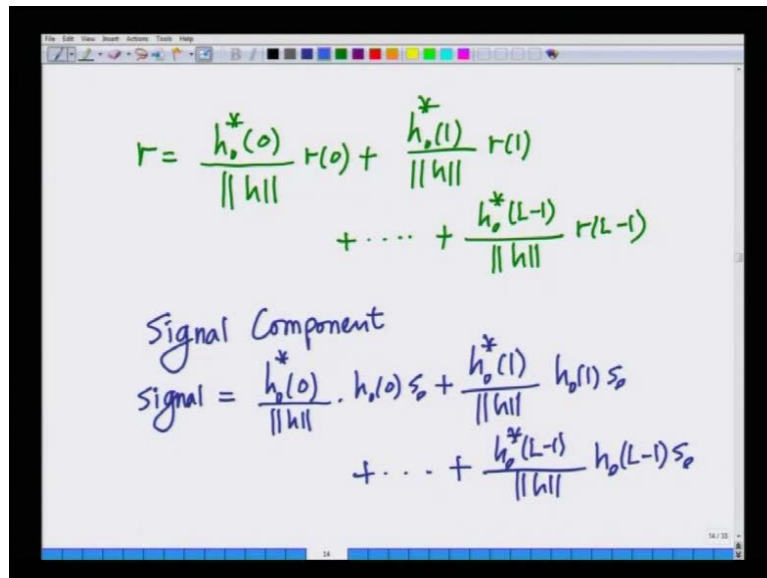 File Edit View Insert Actions Tools Help
r = h₀*(0)/||h|| r(0) + h₀*(1)/||h|| r(1)
+ .... + h₀*(L-1)/||h|| r(L-1)
Signal Component
signal = h₀*(0)/||h|| . h₀(0) s₀ + h₀*(1)/||h|| h₀(1) s₀
+ ... + h₀*(L-1)/||h|| h₀(L-1) s₀
14/33
14